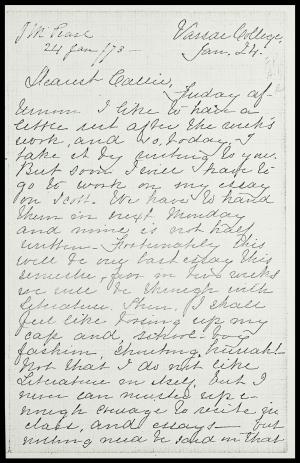 Vassar College,
24 Jan /73 - Jan. 24.
Dearest Callie,
Friday af-
ternoon I like to have a
little rest after the week's
work, and so, today, I
take it by writing to you.
But soon I will have to
go to work on my essay
on Scott. We have to hand
them in next Monday
and mine is not half
written - Fortunately this
will be our last essay this
semester, for in two weeks
we will be through with
Literature. Then, I shall
feel like tossing up my
cap and, school-boy
fashion, shouting, hurrah!
Not that I do not like
Literature in itself, but I
never can muster up e-
nough courage to recite in
class, and essays - but
nothing need be said in that